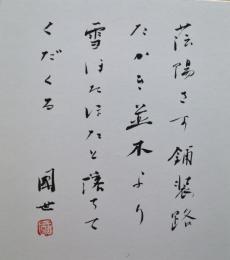 蔭陽さす舗装路
たかき並木より
雪ほたほたと落ちて
くだくる
國世